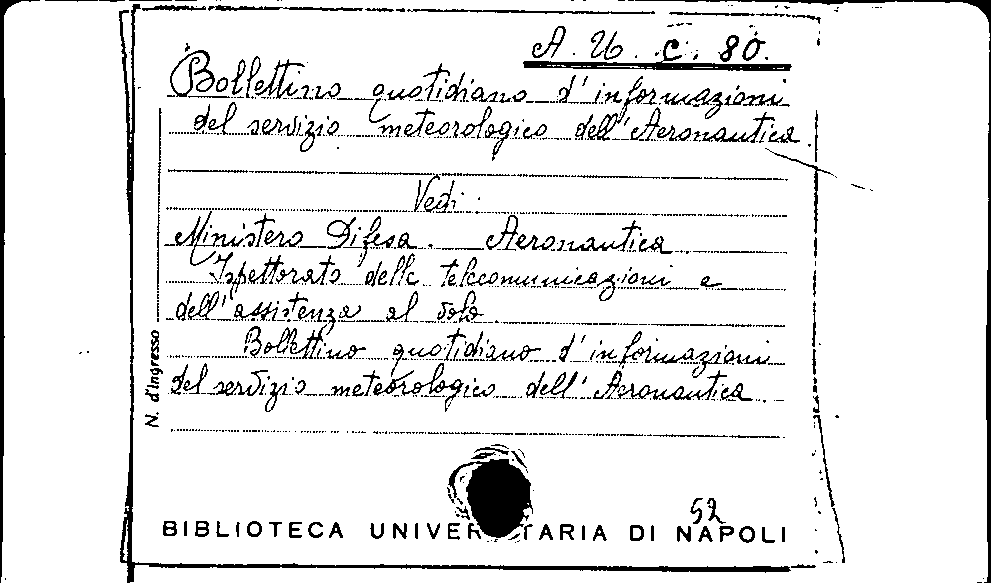 A. U. C. 80.
Bollettino quotidiano d'informazioni
del servizio meteorologico dell'Aeronautica.
Vedi.
Ministero Difesa. Aeronautica
Ispettorato delle telecomunicazioni e
dell'assistenza al volo.
Bollettino quotidiano d'informazioni
del servizio meteorologico dell'Aeronautica.
N. d'Ingresso
52
BIBLIOTECA UNIVER TARIA DI NAPOLI